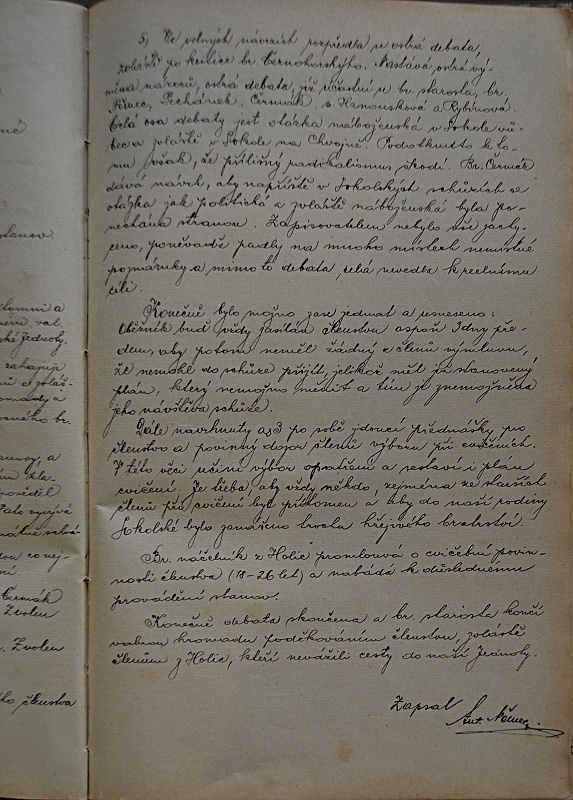 5, Ve volných návrzích rozpředla se ostrá debata,
zvláště po kritice br. Černohorskýho. Nastává ostrá vý-
měna názorů, ostrá debata, jíž účastní se br. starosta, br.
Němec, Pechánek, Čermák, s. Hanousková a Rybínová.
Celá osa debaty jest otázka náboženská v Sokole vů-
bec a zvláště v Sokole na Chvojně. Podotknuto k to-
mu však, že přílišný radikalismus škodí. Br. Čermák
dává návrh, aby napříště v Sokolských schůzích se
otázka jak politická a zvláště náboženská byla po-
nechána stranou. Zapisovatelem nebylo vše zachy-
ceno, poněvadž padly na mnoha místech nemístné
poznámky a mimo to debata, celá nevedla k reelnímu
cíli.
Konečně bylo možno zase jednat a usneseno:
Oběžník buď vždy zasílán členstvu aspoň 3 dny pře-
dem, aby potom neměl žádný z členů výmluvu,
že nemohl do schůze přijít, jelikož měl již stanovený
plán, který nemožno měnit a tím je znemožněna
jeho návštěva schůze.
Dále navrhnuty as 3 po sobě jdoucí přednášky pro
členstvo a povinný dozor členů výboru při cvičeních.
V této věci učiní výbor opatření a sestaví i plán
cvičení. Je třeba, aby vždy někdo, zejména ze starších
členů při cvičení byl přítomen a aby do naší rodiny
Sokolské bylo zaneseno trochu hřejivého bratrství.
Br. náčelník z Holic promlouvá o cvičební povin-
nosti členstva (18-26 let) a nabádá k důslednému
provádění stanov.
Konečně debata skončena a br. starosta končí
valnou hromadu poděkováním členstvu, zvláště
členům z Holic, kteří nevážili cesty do naší Jednoty.
Zapsal
Ant. Němec.
stanov.
ítomni a
ské Jednoty.
zahajuje
omady a
ného br.
a
Čermák
Zvolen
Zvolen
členstva